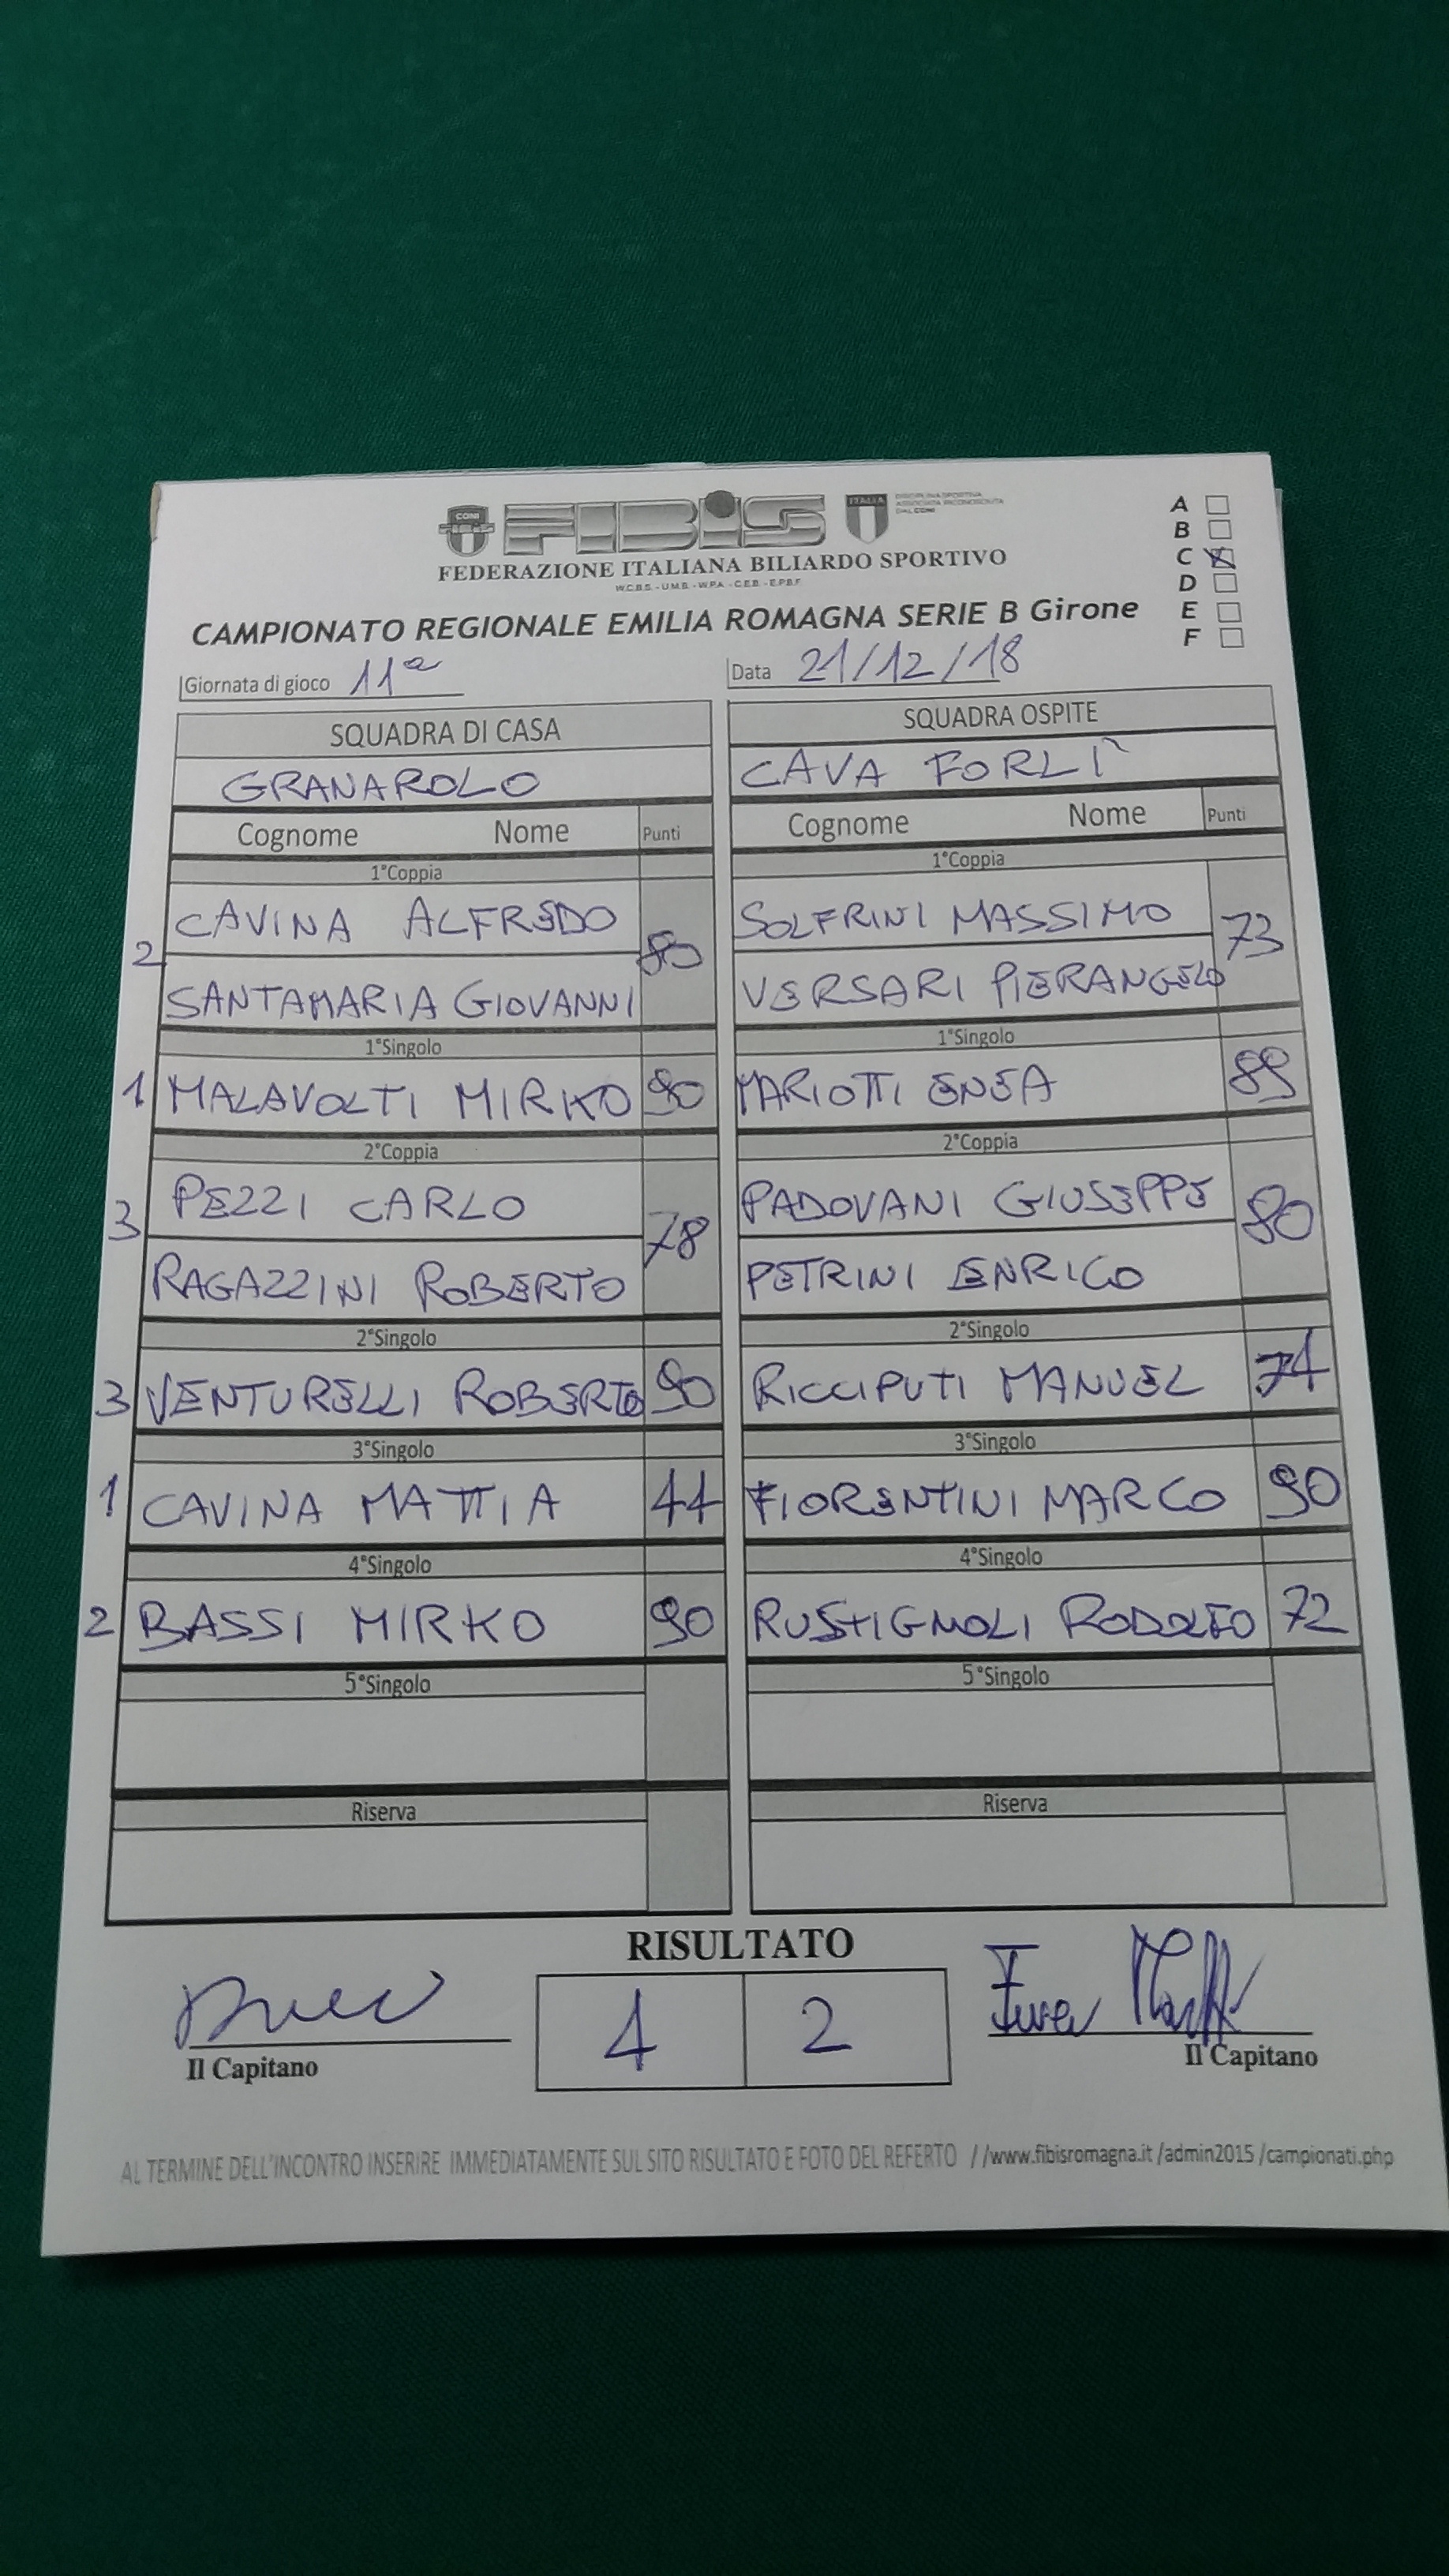 CONI
FIBIS
ITALIA
DISCIPLINA SPORTIVA
ASSOCIATA RICONOSCIUTA
DAL CONI
FEDERAZIONE ITALIANA BILIARDO SPORTIVO
W.C.B.S. - U.M.B. - W.P.A. - C.E.B. - E.P.B.F.
A
B
C X
D
E
F
CAMPIONATO REGIONALE EMILIA ROMAGNA SERIE B Girone
Giornata di gioco 11ª Data 21/12/18
SQUADRA DI CASA SQUADRA OSPITE
GRANAROLO CAVA FORLÌ
Cognome Nome Punti Cognome Nome Punti
1°Coppia 1°Coppia
CAVINA ALFREDO SOLFRINI MASSIMO
2 80 73
SANTAMARIA GIOVANNI VERSARI PIERANGELO
1°Singolo 1°Singolo
1 MALAVOLTI MIRKO 90 MARIOTTI ENEA 89
2°Coppia 2°Coppia
PEZZI CARLO PADOVANI GIUSEPPE
3 78 80
RAGAZZINI ROBERTO PETRINI ENRICO
2°Singolo 2°Singolo
3 VENTURELLI ROBERTO 90 RICCIPUTI MANUEL 74
3°Singolo 3°Singolo
1 CAVINA MATTIA 44 FIORENTINI MARCO 90
4°Singolo 4°Singolo
2 BASSI MIRKO 90 RUSTIGNOLI RODOLFO 72
5°Singolo 5°Singolo
Riserva Riserva
RISULTATO
4 2
Il Capitano Il Capitano
AL TERMINE DELL'INCONTRO INSERIRE IMMEDIATAMENTE SUL SITO RISULTATO E FOTO DEL REFERTO //www.fibisromagna.it /admin2015 /campionati.php